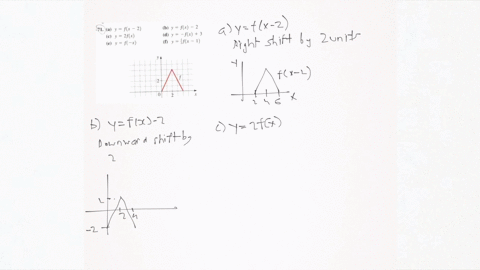 (a) y = f(x − 2)
(b) y = f(x) − 2
(c) y = 2f(x)
(d) y = −f(x) + 3
(e) y = f(−x)
a) y = f(x-2)
Right shift by 2 units
y
f(x-2)
2 4 6 x
b) y = f(x)-2
Downward shift by
2
2
2 4
-2
c) y = 2f(x)